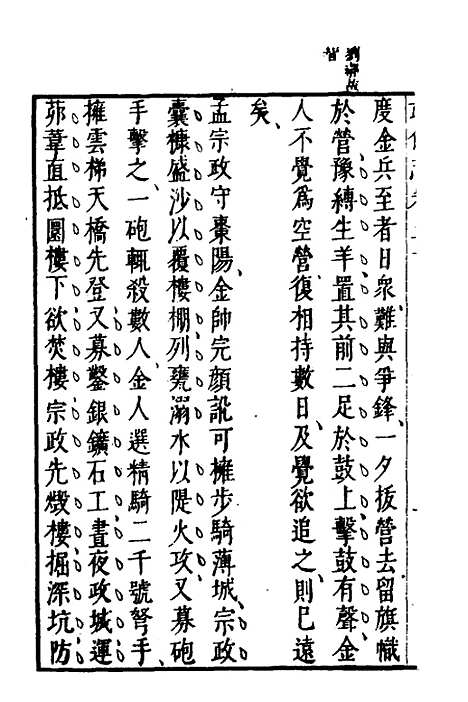 度金兵至者日衆難與爭鋒、一夕拔營去留旗幟
於營豫縛生羊置其前二足於鼓上擊鼓有聲金
人不覺爲空營復相持數日、及覺欲追之、則已遠
矣、
孟宗政守棗陽、金帥完顏訛可擁步騎薄城、宗政
囊糠盛沙以覆樓棚列甕溺水以隄火攻又募砲
手擊之、一砲輒殺數人金人選精騎二千號弩手、
擁雲梯天橋先登又募鑿銀鑛石工晝夜政城運
茆葦直抵圜樓下欲焚樓宗政先燬樓掘深坑防